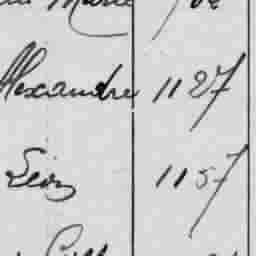 Marie
Alexandre 1127
Léon 1157